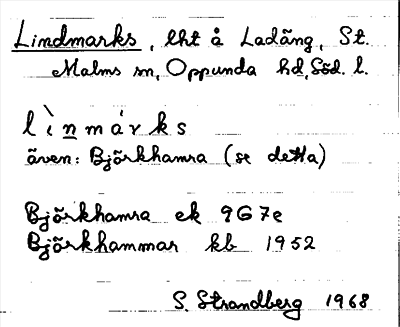 Lindmarks, lht å Ladäng, St.
Malms sn, Oppunda hd, Söd. l.
lìnmárks
även: Björkhamra (se detta)
Björkhamra ek 9G7e
Björkhammar kb 1952
S. Strandberg 1968